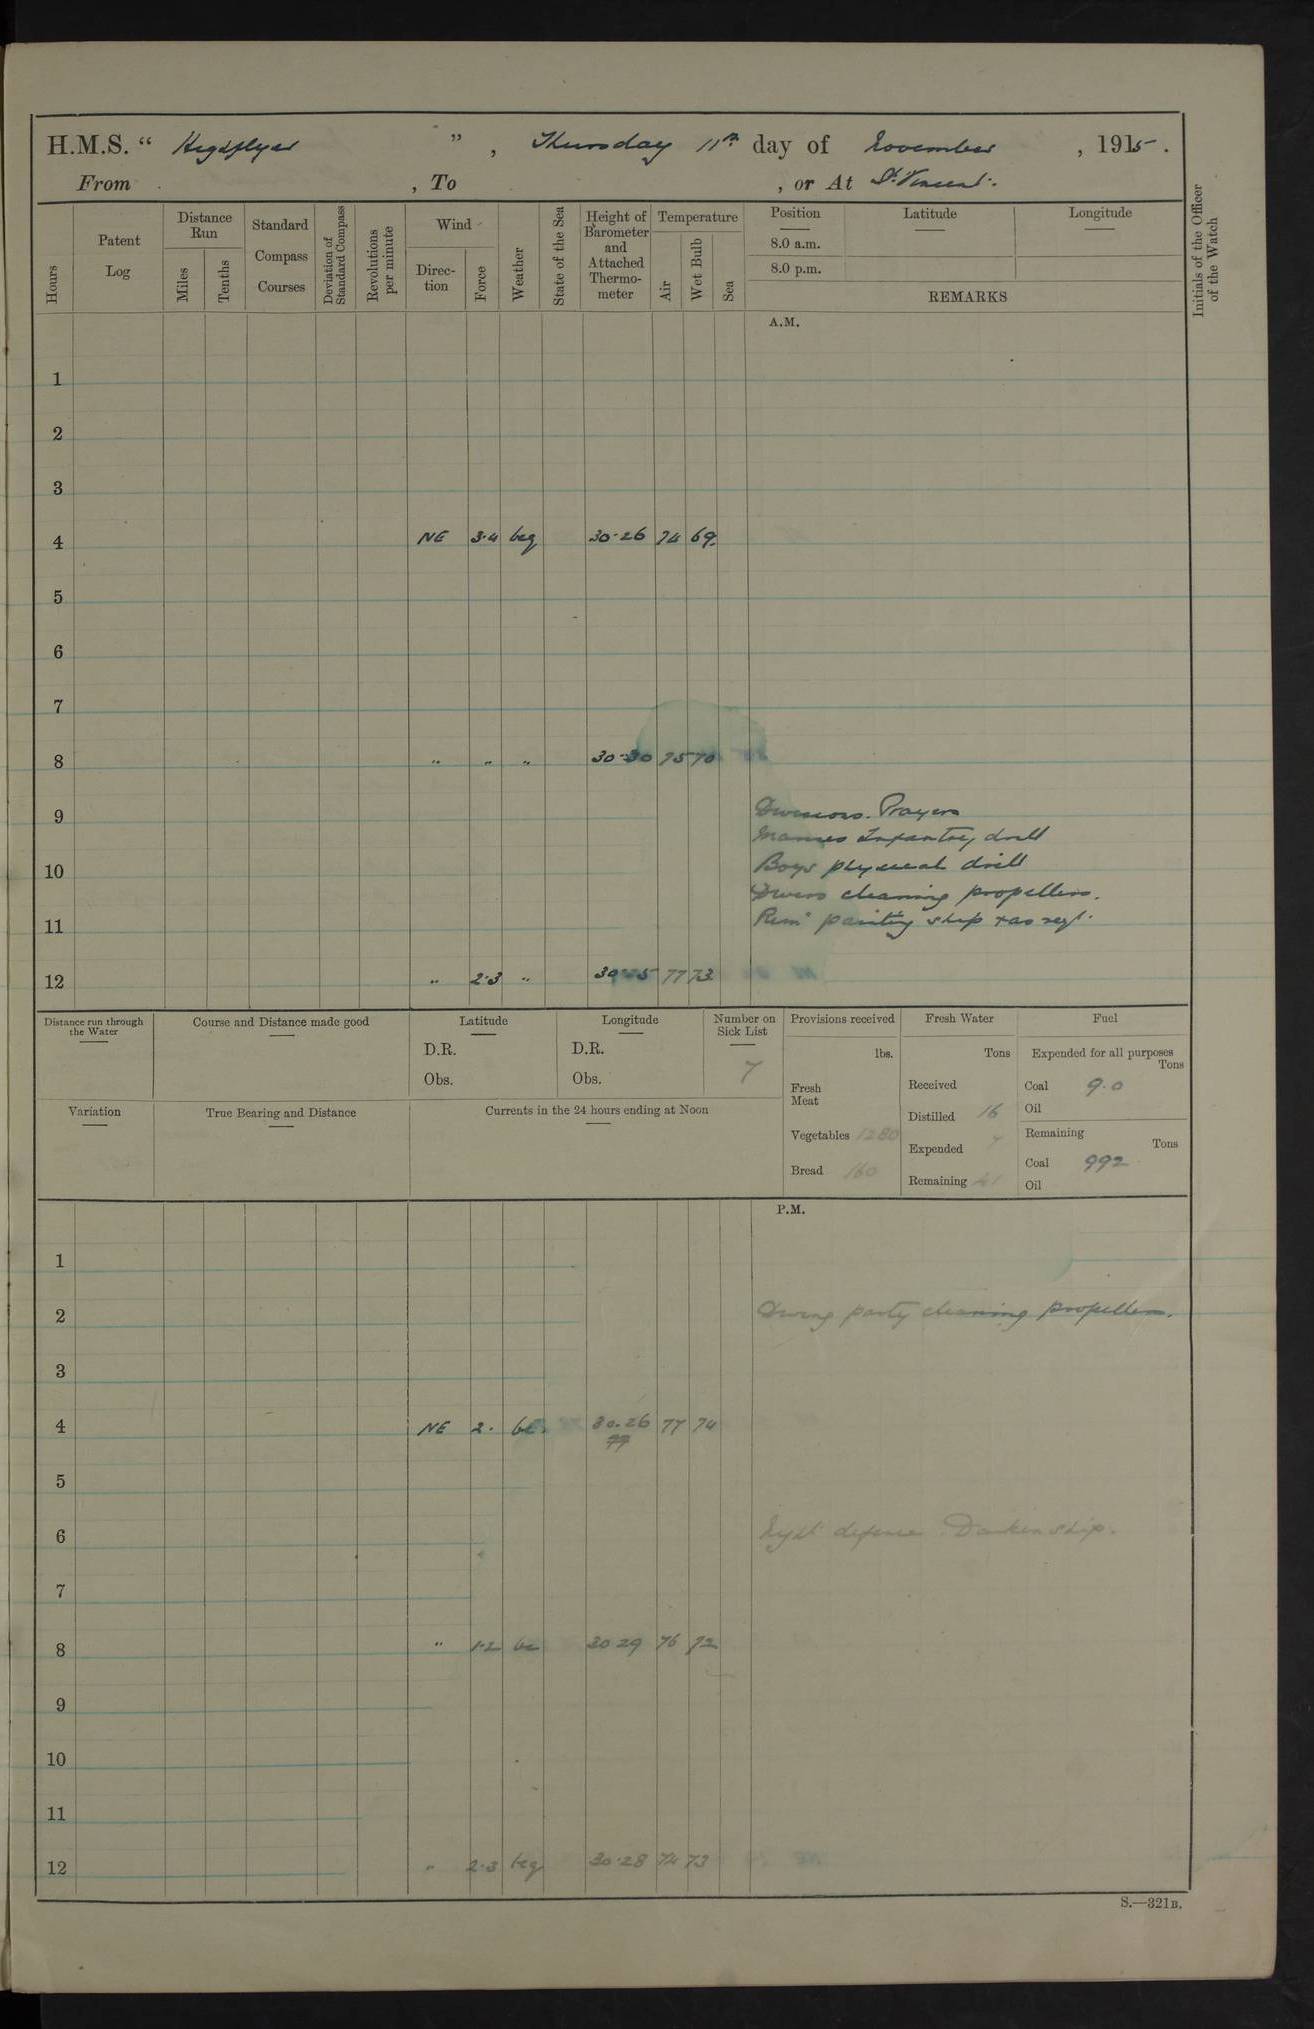 H.M.S. “ Highflyer ” , Thursday 11th day of November , 1915 .
From , To , or At St. Vincent.
Hours
Patent Log
Distance Run
Miles
Tenths
Standard Compass Courses
Deviation of Standard Compass
Revolutions per minute
Wind
Direction
Force
Weather
State of the Sea
Height of Barometer and Attached Thermometer
Temperature
Air
Wet Bulb
Sea
Position Latitude Longitude
8.0 a.m.
8.0 p.m.
REMARKS
Initials of the Officer of the Watch
A.M.
1
2
3
4 NE 3·4 bcq 30·26 74 69
5
6
7
8 " " " 30·30 75 70
9 Divisions. Prayers
Marines Infantry drill
10 Boys physical drill
Divers cleaning propellers.
11 Remr painting ship & as reqt.
12 " 2·3 " 77 73
Distance run through the Water
Course and Distance made good
Latitude
D.R.
Obs.
Longitude
D.R.
Obs.
Number on Sick List
7
Provisions received
lbs.
Fresh Meat
Vegetables 1280
Bread 160
Fresh Water
Tons
Received
Distilled 16
Expended 7
Remaining 41
Fuel
Expended for all purposes
Tons
Coal 9.0
Oil
Remaining
Tons
Coal 992
Oil
Variation
True Bearing and Distance
Currents in the 24 hours ending at Noon
P.M.
1
2 Diving party cleaning propellers.
3
4 NE 2. bc. 30.26 77 74
77
5
6 Night defence. Darken ship.
7
8 " 1·2 bc 30 29 76 72
9
10
11
12 " 2·3 bcq 30·28 74 73
S.—321B.